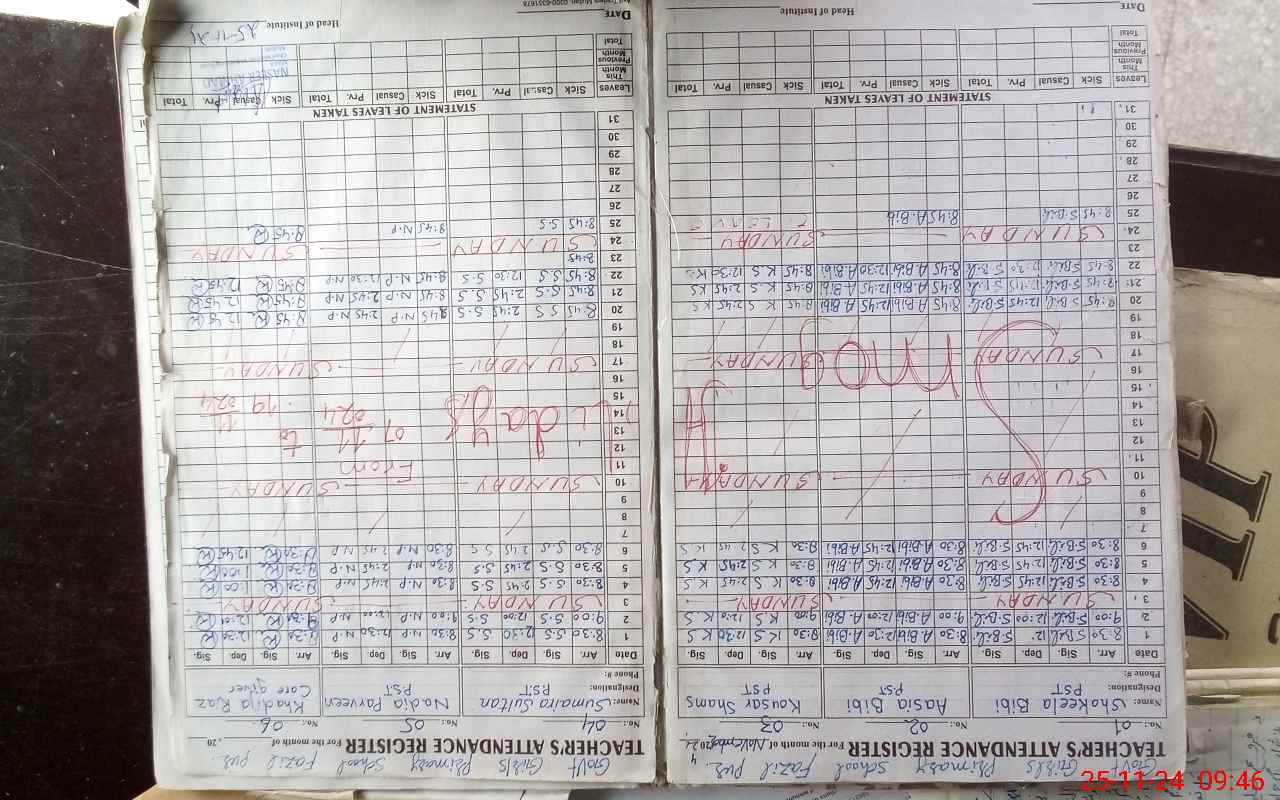 Govt Girls Primary School Fazil pur.
TEACHER'S ATTENDANCE REGISTER For the month of November 2024
No.: 01 No.: 02 No.: 03
Name: Shakeela Bibi Aasia Bibi Kousar Shams
Designation: PST PST
Phone #:
Date Arr. Sig. Dep. Sig. Arr. Sig. Dep. Sig. Arr. Sig. Dep. Sig.
1 8:30 S.Bibi 12: S.Bibi 8:30 A.Bibi 12:30 A.Bibi 8:30 K S 12:30 K S
2 9:00 S.Bibi 12:00 S.Bibi 9:00 A.Bibi 12:00 A.Bibi 9:00 K S 12:00 K S
3 SUNDAY SUNDAY
4 8:30 S.Bibi 12:45 S.Bibi 8:30 A.Bibi 12:45 A.Bibi 8:30 K S 2:45 K S
5 8:30 S.Bibi 12:45 S.Bibi 8:30 A.Bibi 12:45 A.Bibi 8:30 K S 2:45 K S
6 8:30 S.Bibi 12:45 S.Bibi 8:30 A.Bibi 12:45 A.Bibi 8:30 K S 2:45 K S
7
8
9
10 SUNDAY SUNDAY
11
12
13
14
15
16
Smog H
17 SUNDAY SUNDAY
18
19
20 8:45 S.Bibi 12:45 S.Bibi 8:45 A.Bibi 12:45 A.Bibi 8:45 K S 2:45 K S
21 8:45 S.Bibi 12:45 S.Bibi 8:45 A.Bibi 12:45 A.Bibi 8:45 K S 2:45 K S
22 8:45 S.Bibi 12:30 S.Bibi 8:45 A.Bibi 12:30 A.Bibi 8:45 K S 12:30 K S
23
24 SUNDAY SUNDAY
25 8:45 S.Bibi 8:45 A.Bibi C. Leave
26
27
28
29
30
31
STATEMENT OF LEAVES TAKEN
Leaves Sick Casual Prv. Total Sick Casual Prv. Total Sick Casual Prv. Total
This Month
Previous Month
Total
DATE Head of Institute
Govt Girls Primary School Fazil pur.
TEACHER'S ATTENDANCE REGISTER For the month of , 20
No.: 04 No.: 05 No.: 06
Name: Sumaira Sultan Nadia Parveen Khadija Riaz
Designation: PST PST Care giver
Phone #:
Date Arr. Sig. Dep. Sig. Arr. Sig. Dep. Sig. Arr. Sig. Dep. Sig.
1 8:30 S.S 12:30 S.S 8:30 N.P 12:30 N.P 8:30 K 12:30 K
2 9:00 S.S 12:00 S.S 9:00 N.P 12:00 N.P K K
3 SUNDAY SUNDAY
4 8:30 S.S 2:45 S.S 8:30 N.P 2:45 N.P 8:30 K 1:00 K
5 8:30 S.S 2:45 S.S 8:30 N.P 2:45 N.P 8:30 K 1:00 K
6 8:30 S.S 2:45 S.S 8:30 N.P 2:45 N.P 8:30 K 12:45 K
7
8
9
10 SUNDAY SUNDAY
11
12
13
14
15
16
olidays From 07/11/024 to 19/11/024
17 SUNDAY SUNDAY
18
19
20 8:45 S.S 2:45 S.S 8:45 N.P 2:45 N.P 8:45 K 12:45 K
21 8:45 S.S 2:45 S.S 8:45 N.P 2:45 N.P 8:45 K 12:45 K
22 8:45 S.S 12:30 S.S 8:45 N.P 12:30 N.P 8:45 K 12:45 K
23 8:45
24 SUNDAY SUNDAY
25 8:45 S.S 8:45 N.P 8:45 K
26
27
28
29
30
31
STATEMENT OF LEAVES TAKEN
Leaves Sick Casual Prv. Total Sick Casual Prv. Total Sick Casual Prv. Total
This Month
Previous Month
Total
DATE Head of Institute 25-11-24
25-11-24 09:46